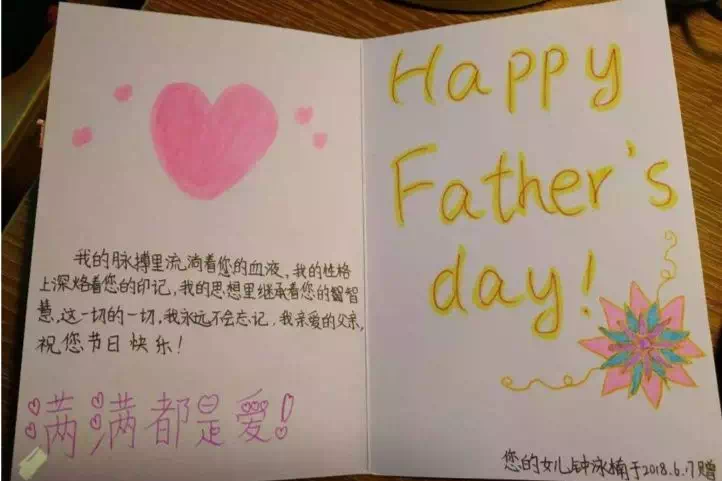 我的脉搏里流淌着您的血液，我的性格
上深烙着您的印记，我的思想里继承着您的智智
慧，这一切的一切，我永远不会忘记，我亲爱的父亲，
祝您节日快乐！
满满都是爱！
Happy
Father's
day!
您的女儿钟泳楠于2018.6.17赠